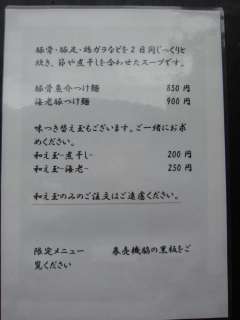 豚骨・豚足・鶏ガラなどを2日間じっくりと
炊き、節や煮干しを合わせたスープです。
豚骨魚介つけ麺 850円
海老豚つけ麺 900円
味つき替え玉もございます。ご一緒にお求
めください。
和え玉-煮干し- 200円
和え玉-海老- 250円
和え玉のみのご注文はご遠慮ください。
限定メニュー 券売機脇の黒板をご
覧ください